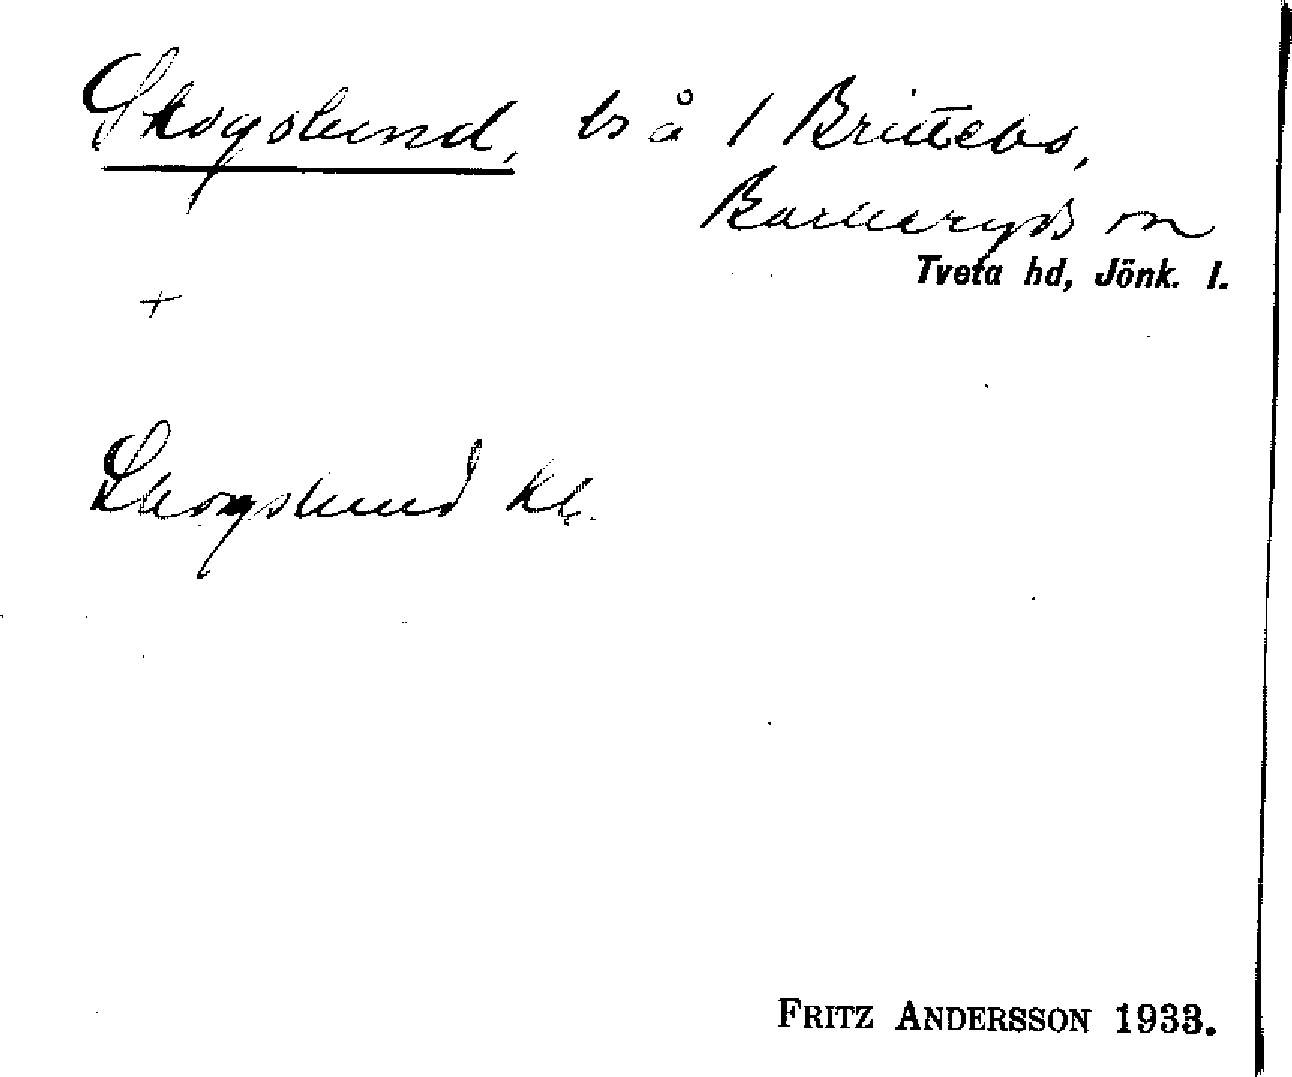 Skogslund, ls å 1 Brittebo,
Barkeryds sn
Tveta hd, Jönk. l.
+
Skogslund
FRITZ ANDERSSON 1933.